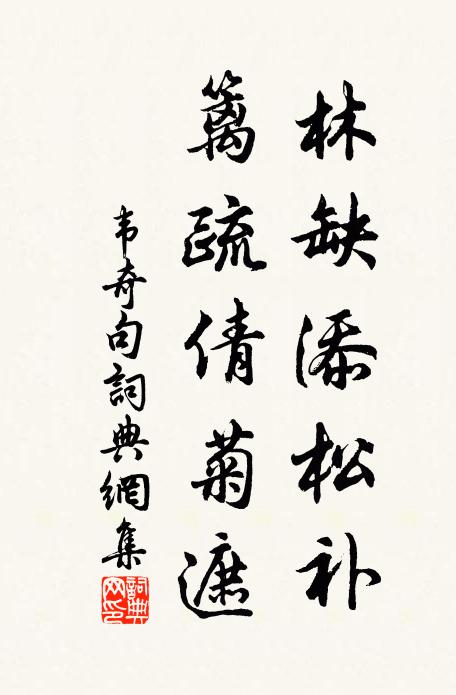 林缺添松补
篱疏倩菊遮
韦奇句詞典網集
詞典网印